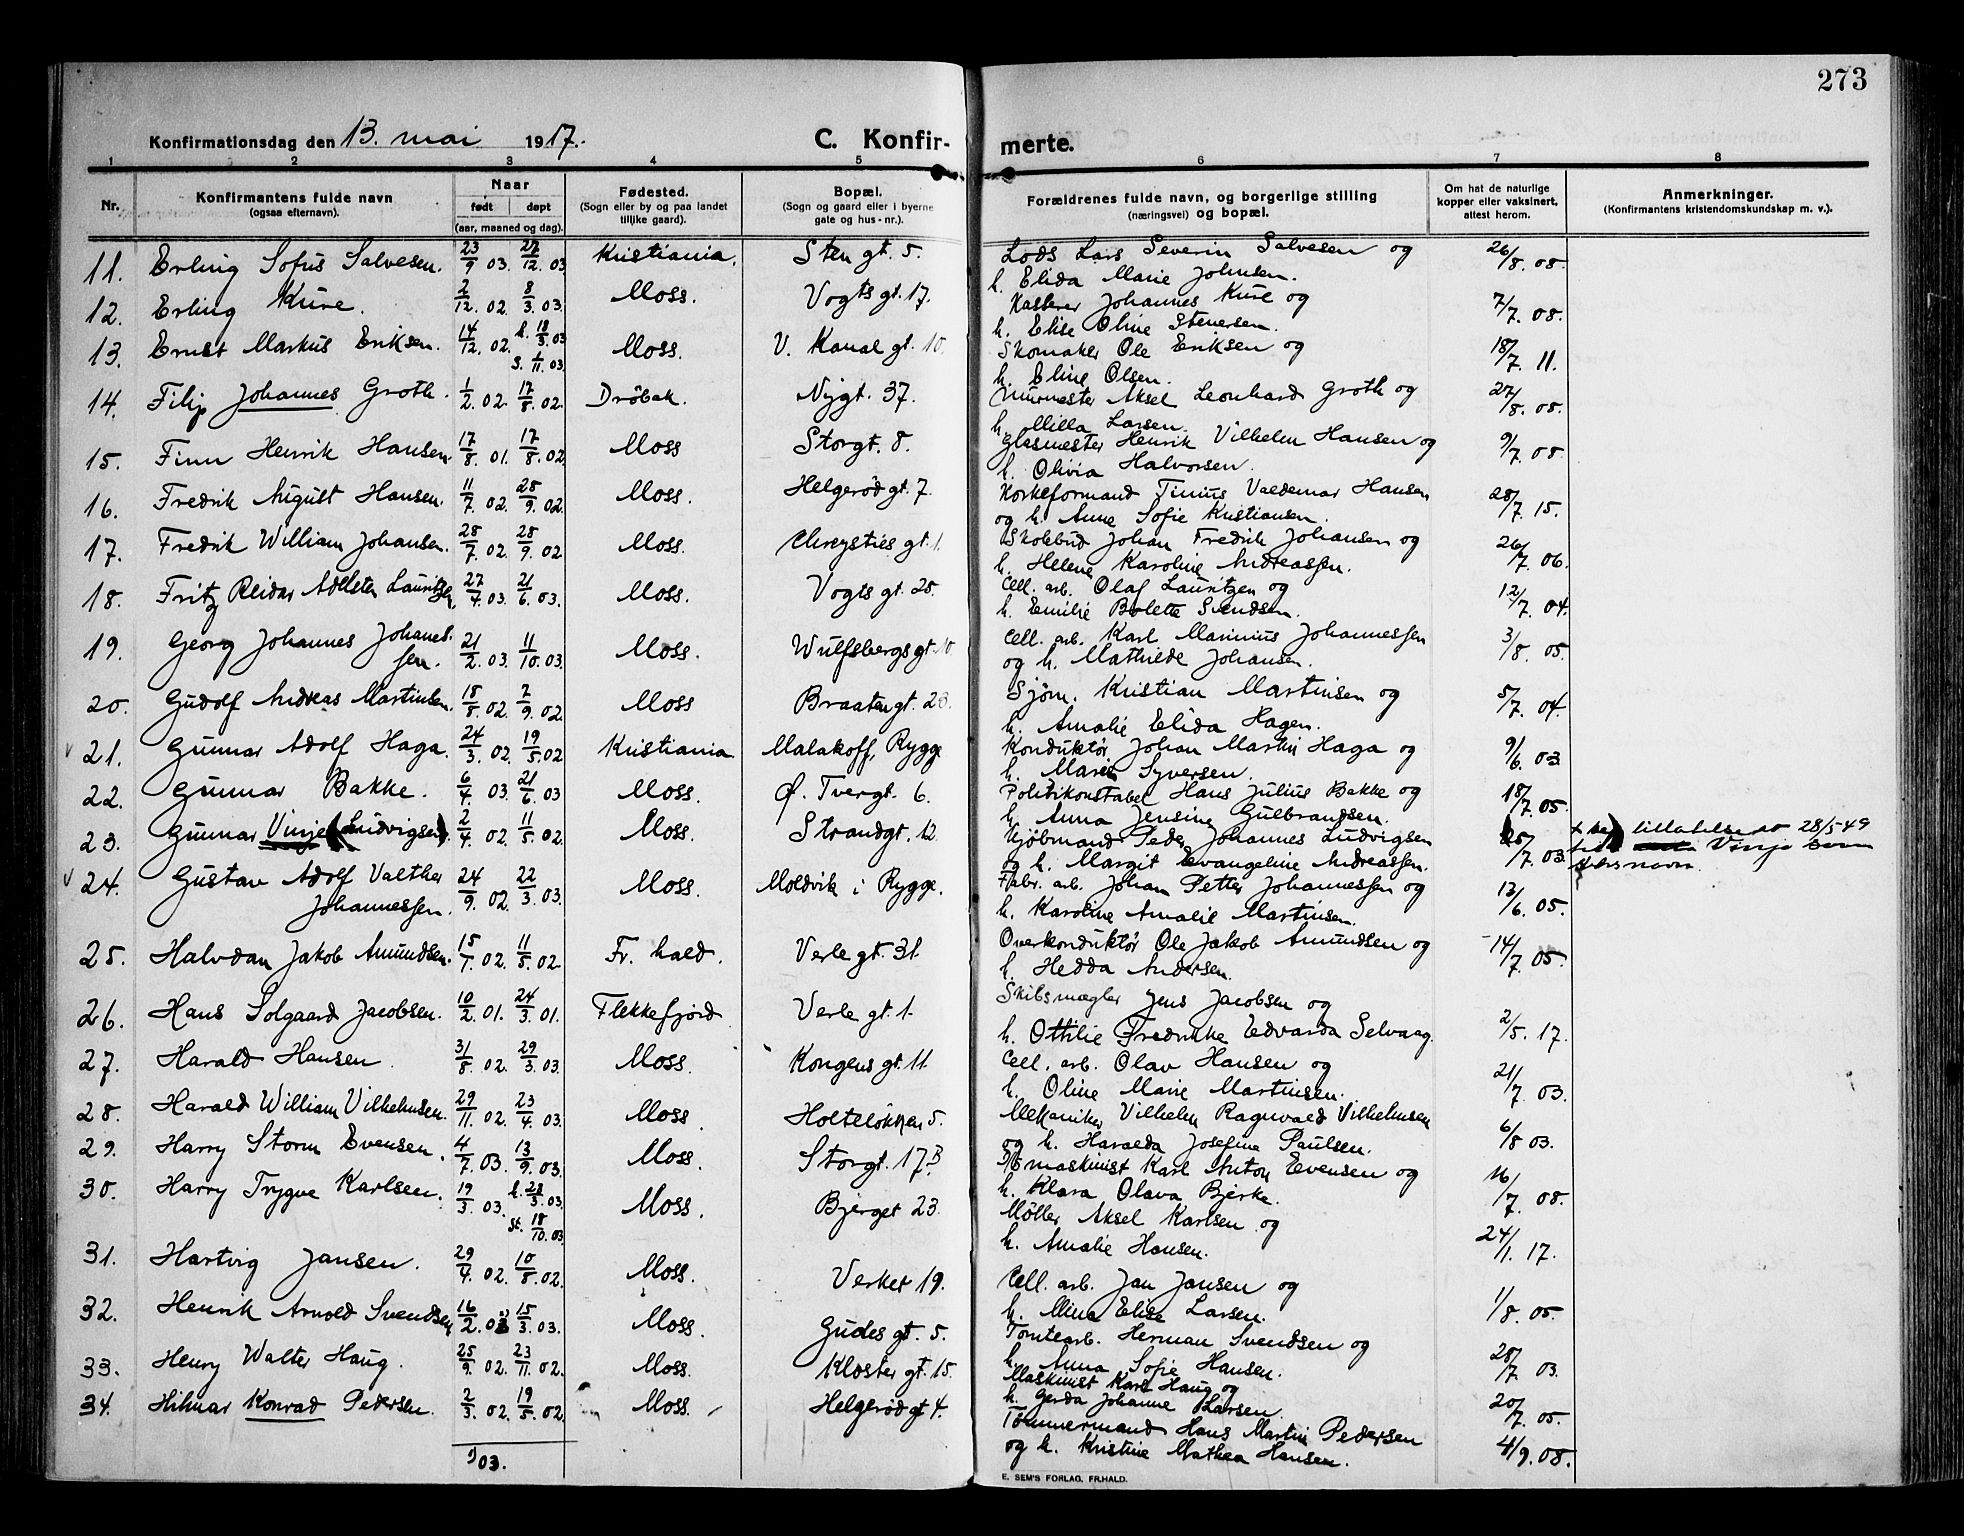 273
Konfirmationsdag den 13. mai 1917.
C. Konfirmerte.
1 2 3 4 5 6 7 8
Nr. Konfirmantens fulde navn (ogsaa efternavn). Naar født døpt (aar, maaned og dag). Fødested. (Sogn eller by og paa landet tillike gaard). Bopæl. (Sogn og gaard eller i byerne gate og hus-nr.). Forældrenes fulde navn, og borgerlige stilling (næringsvei) og bopæl. Om hat de naturlige kopper eller vaksinert, attest herom. Anmerkninger. (Konfirmantens kristendomskundskap m. v.).
11. Erling Sofus Salvesen. 23/9 03. 27/12. 03 Kristiania. Sten gt. 5. Lods Lars Severin Salvesen og 26/8. 08.
h. Elida Marie Johnsen.
12. Erling Kure. 2/12. 02. 8/3. 03. Moss. Vogts gt. 17. Kasserer Johannes Kure og 7/7. 08.
h. Elise Oline Stenersen.
13. Ernst Markus Eriksen. 14/12. 02. h. 18/3. 03 S. 1/11. 03. Moss. V. Kanal gt. 10. Skomaker Ole Eriksen og 18/7. 11.
h. Eline Olsen.
14. Filip Johannes Groth. 1/2. 02. 17/8. 02. Drøbak. Nygt. 37. Murmester Aksel Leonhard Groth og 27/8. 08.
h. Milla Larsen.
15. Finn Henrik Hansen. 17/8. 01. 17/8. 02. Moss Storgt. 8. Glasmester Henrik Vilhelm Hansen og 9/7. 08.
h. Olivia Halvorsen.
16. Fredrik August Hansen. 11/7. 02. 28/9. 02. Moss. Helgerød gt. 7. Korkeformand Tinius Valdemar Hansen 28/7. 15.
og h. Anne Sofie Kristiansen.
17. Fredrik William Johansen. 28/7. 02. 28/9. 02 Moss. Chrysties gt. 1. Skolebud Johan Fredrik Johansen og 26/7. 06.
h. Helene Karoline Andreassen.
18. Fritz Reidar Adelsten Lauritzen. 27/4. 03. 21/6. 03. Moss. Vogts gt. 28. Cell. arb. Olaf Lauritzen og 12/7. 04.
h. Emilie Bolette Svendsen.
19. Georg Johannes Johanes- 21/2. 03. 11/10. 03. Moss. Wulfsbergs gt. 10 Cell. arb. Karl Marinius Johannessen 3/8. 05.
sen. og h. Mathilde Johansen.
20. Gudolf Andreas Martinsen. 18/8. 02. 7/9. 02. Moss Braaten gt. 23. Sjøm. Kristian Martinsen og 5/7. 04.
h. Amalie Elida Hagen.
v 21. Gunnar Adolf Haga. 24/3. 02. 19/5. 02 Kristiania Malakoff, Rygge Konduktør Johan Martin Haga og 9/6. 03
h. Marie Syversen.
22. Gunnar Bakke. 6/4. 03. 21/6. 03 Moss. Ø. Tvergt. 6. Politikonstabel Hans Julius Bakke og 18/7. 05.
h. Anna Jensine Gulbrandsen.
23. Gunnar Vinje (Ludvigsen) 2/4. 02. 11/5. 02. Moss. Strandgt. 12. Kjøbmand Peder Johannes Ludvigsen 25/7. 03. tillatelse av 28/5-49
og h. Margit Evangeline Andreassen. Vinje som
slektsnavn.
v 24. Gustav Adolf Valther 24/9. 02. 22/3. 03. Moss. Moldvik i Rygge. Fabr. arb. Johan Petter Johannessen og 13/6. 05.
Johannessen. h. Karoline Amalie Martinsen.
25. Halvdan Jakob Amundsen. 15/1. 02. 11/5. 02. Fr. hald. Verle gt. 31. Overkonduktør Ole Jakob Amundsen og 14/7. 05.
h. Hedda Andersen.
26. Hans Solgaard Jacobsen. 10/2. 01. 24/3. 01. Flekkefjord Verle gt. 1. Skibsmægler Jens Jacobsen og 2/5. 17.
h. Ottilie Fredrikke Edvarda Selvaag.
27. Harald Hansen. 31/8. 02. 29/3. 03. Moss. Kongens gt. 11. Cell. arb. Olav Hansen og 21/7. 03.
h. Oline Marie Martinsen.
28. Harald William Vilhelmsen. 29/11. 02. 23/4. 03. Moss. Holteløkken 5. Mekaniker Vilhelm Ragnvald Vilhelmsen 6/8 03.
og h. Haralda Josefine Paulsen.
29. Harry Storm Evensen. 4/7. 03. 13/9. 03. Moss. Storgt. 17 B. maskinist Karl Anton Evensen og 16/7. 08.
h. Klara Olava Bjerke.
30. Harry Trygve Karlsen. 19/3. 03. h. 28/3. 03. st. 18/10. 03. Moss. Bjerget 23. Møller Aksel Karlsen og 24/1. 17.
h. Amalie Hansen.
31. Hartvig Jansen. 29/4. 02. 10/8. 02. Moss. Verket 19. Cell. arb. Jan Jansen og 1/8. 05.
h. Mina Elise Larsen.
32. Henrik Arnold Svendsen 16/2. 03 15/3. 03. Moss. Gudes gt. 5. Tomtearb. Herman Svendsen og 28/7 03.
h. Anna Sofie Hansen.
33. Henry Walter Haug. 25/9. 02. 23/11. 02. Moss. Kloster gt. 15. Maskinist Karl Haug og 20/7. 05.
h. Gerda Johanne Larsen.
34. Hilmar Konrad Pedersen. 2/3. 02. 19/5. 02. Moss. Helgerød gt 4. Tømmermand Hans Martin Pedersen 4/9. 08.
og h. Kristine Mathea Hansen.
03.
E. SEM'S FORLAG, FR.HALD.